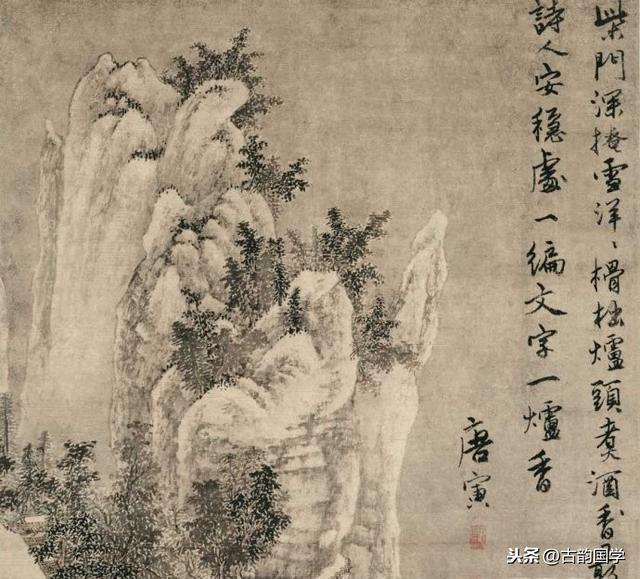 柴門深掩雪洋〻榾柮爐頭煮酒香
詩人安穩處一編文字一爐香
唐寅
头条 @古韵国学